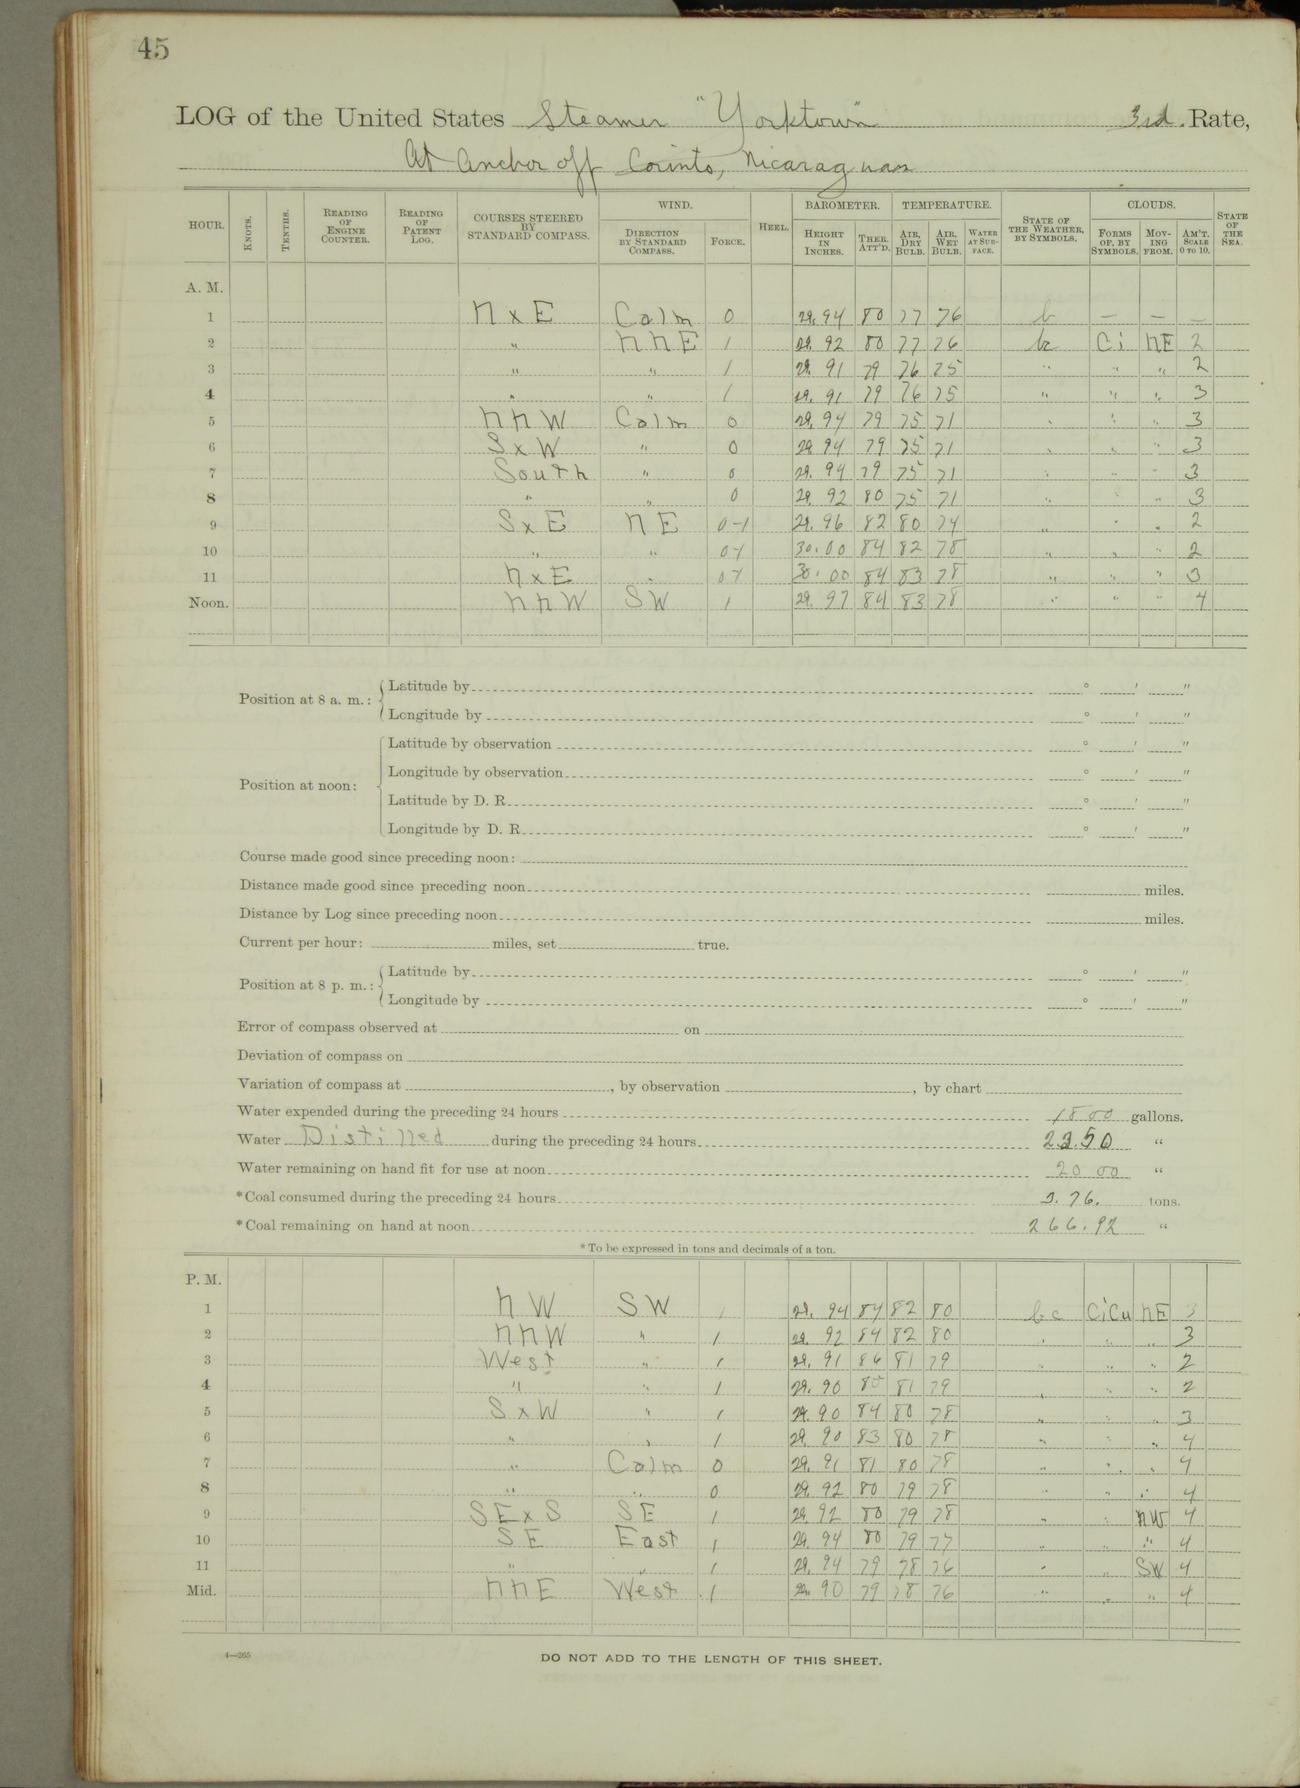 45
LOG of the United States Steamer "Yorktown" 3rd. Rate,
At Anchor off Corinto, Nicaragua
HOUR. KNOTS. TENTHS. READING OF ENGINE COUNTER. READING OF PATENT LOG. COURSES STEERED BY STANDARD COMPASS. WIND. DIRECTION BY STANDARD COMPASS. FORCE. HEEL. BAROMETER. HEIGHT IN INCHES. THER. ATT'D. TEMPERATURE. AIR, DRY BULB. AIR, WET BULB. WATER AT SURFACE. STATE OF THE WEATHER, BY SYMBOLS. CLOUDS. FORMS OF, BY SYMBOLS. MOVING FROM. AM'T. SCALE 0 TO 10. STATE OF THE SEA.
A. M.
1 N x E Calm 0 29.94 80 77 76 b — — —
2 " NNE 1 29.92 80 77 76 bc Ci NE 2
3 " " 1 29.91 79 76 75 " " " 2
4 " " 1 29.91 79 76 75 " " " 3
5 NNW Calm 0 29.94 79 75 71 " " " 3
6 S x W " 0 29.94 79 75 71 " " " 3
7 South " 0 29.94 79 75 71 " " " 3
8 " " 0 29.92 80 75 71 " " " 3
9 S x E NE 0-1 29.96 82 80 74 " " " 2
10 " " 0-1 30.00 84 82 78 " " " 2
11 N x E " 0-1 30.00 84 83 78 " " " 3
Noon. NNW SW 1 29.97 84 83 78 " " " 4
Position at 8 a. m.: Latitude by ° ' "
Longitude by ° ' "
Position at noon: Latitude by observation ° ' "
Longitude by observation ° ' "
Latitude by D. R. ° ' "
Longitude by D. R. ° ' "
Course made good since preceding noon:
Distance made good since preceding noon miles.
Distance by Log since preceding noon miles.
Current per hour: miles, set true.
Position at 8 p. m.: Latitude by ° ' "
Longitude by ° ' "
Error of compass observed at on
Deviation of compass on
Variation of compass at , by observation , by chart
Water expended during the preceding 24 hours 1800 gallons.
Water Distilled during the preceding 24 hours 2350 "
Water remaining on hand fit for use at noon 2000 "
*Coal consumed during the preceding 24 hours 3.76. tons.
*Coal remaining on hand at noon 266.92 "
*To be expressed in tons and decimals of a ton.
P. M.
1 NW SW 1 29.94 84 82 80 bc CiCu NE 3
2 NNW " 1 29.92 84 82 80 " " " 3
3 West " 1 29.91 86 81 79 " " " 2
4 " " 1 29.90 85 81 79 " " " 2
5 S x W " 1 29.90 84 80 78 " " " 3
6 " " 1 29.90 83 80 78 " " " 4
7 " Calm 0 29.91 81 80 78 " " " 4
8 " " 0 29.92 80 79 78 " " " 4
9 SE x S SE 1 29.92 80 79 78 " " NW 4
10 SE East 1 29.94 80 79 77 " " " 4
11 " " 1 29.94 79 78 76 " " SW 4
Mid. NNE West 1 29.90 79 78 76 " " " 4
4—265
DO NOT ADD TO THE LENGTH OF THIS SHEET.